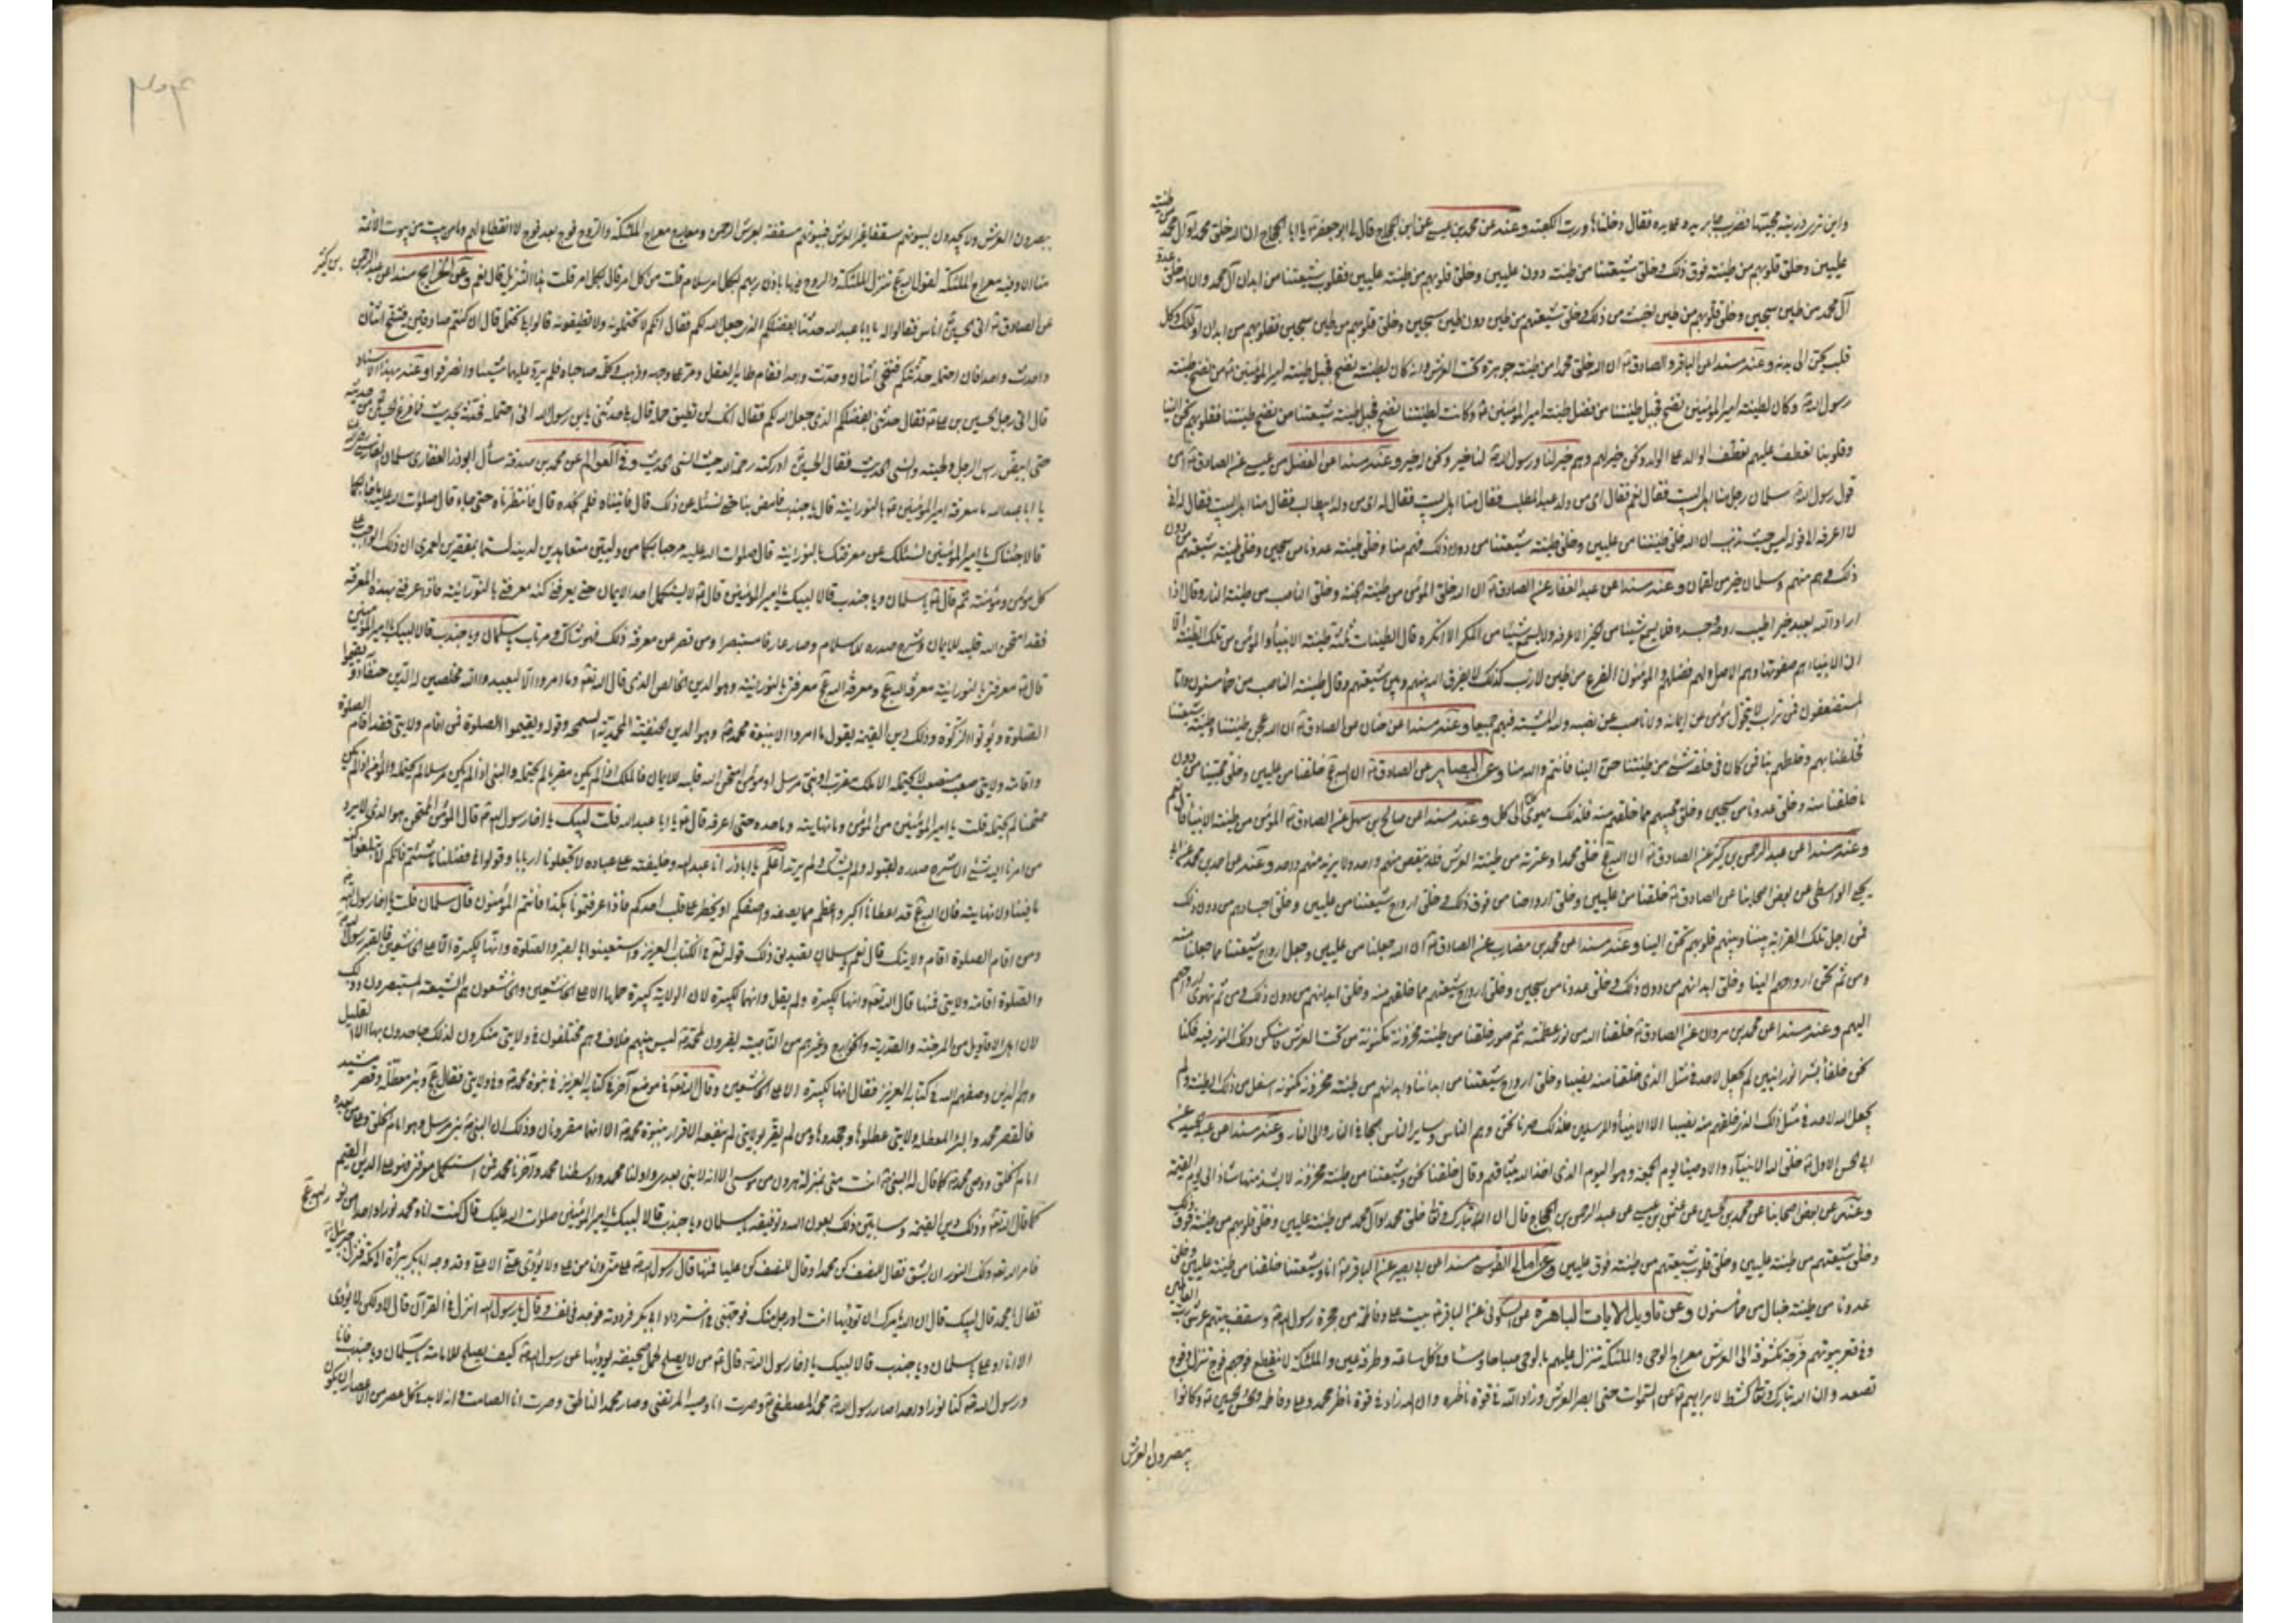 عليين وخلق قلوبهم من طينة فوق ذلك وخلق شيعتنا من طينة دون عليين وخلق قلوبهم من طينة عليين فقلوب شيعتنا من ابدان آل محمد وان الله خلق
آل محمد من طين سجين وخلق قلوبهم من طين اخبث من ذلك وخلق شيعتهم من طين دون طين سجين وخلق قلوبهم من طين سجين فقلوبهم من ابدان اولئك وكل
قلب يحن الى بدنه وعنه مسندا عن الباقر والصادق ان الله خلق محمدا من طينة جوهرة تحت العرش وانه كان لطينته نضح فجبل طينة امير المؤمنين من نضح طينة
رسول الله وكان لطينة امير المؤمنين نضح فجبل طينتنا من فضل طينة امير المؤمنين وكانت لطينتنا نضح فجبل طينة شيعتنا من نضح طينتنا فقلوبهم تحن الينا
وقلوبنا تعطف عليهم تعطف الوالد على الولد ونحن خير لهم وهم خير لنا ورسول الله لنا خير ونحن له خير وعنه مسندا عن الفضل بن عيسى عن الصادق
قول رسول الله سلمان رجل منا اهل البيت فقال نعم فقال اى من ولد عبد المطلب فقال منا اهل البيت فقال له اى من ولد ابيطالب فقال منا اهل البيت فقال له انى
لا اعرفه ان الله خلق طينتنا من عليين وخلق طينة شيعتنا من دون ذلك فهم منا وخلق طينة عدونا من سجين وخلق طينة شيعتهم من دون
ذلك وهم منهم وسلمان خير من لقمان وعنه مسندا عن عبد الغفار عن الصادق ان الله خلق المؤمن من طينة الجنة وخلق الناصب من طينة النار وقال اذا
اراد الله بعبد خيرا طيب روحه وجسده فلا يسمع شيئا من الخير الا عرفه ولا يسمع شيئا من المنكر الا انكره قال الطينات ثلثة طينة الانبياء والمؤمن من تلك الطينة الا
ان الانبياء هم صفوتها وهم الاصل ولهم فضلهم والمؤمنون الفرع من طين لازب كذلك لا يفرق الله بينهم وبين شيعتهم وقال طينة الناصب من حمأ مسنون واما
المستضعفون فمن تراب لا يتحول مؤمن عن ايمانه ولا ناصب عن نصبه ولله المشية فيهم جميعا وعنه مسندا عن حنان عن الصادق ان الله عجن طينتنا وطينة شيعتنا
فخلطنا بهم وخلطهم بنا فمن كان في خلقه شئ من طينتنا حن الينا فانتم والله منا وعن البصائر عن الصادق ان الله خلقنا من عليين وخلق محبينا من دون
ما خلقنا منه وخلق عدونا من سجين وخلق محبيهم مما خلقهم منه فلذلك يهوى كل الى كل وعنه مسندا عن صالح بن سهل عن الصادق المؤمن من طينة الانبياء قال نعم
وعنه مسندا عن عبد الرحمن بن كثير عن الصادق ان الله خلق محمدا وعترته من طينة العرش فلا ينقص منهم واحد ولا يزيد منهم واحد وعنه عن احمد بن محمد عن ابى
يحيى الواسطى عن بعض اصحابنا عن الصادق خلقنا من عليين وخلق ارواحنا من فوق ذلك وخلق ارواح شيعتنا من عليين وخلق اجسادهم من دون ذلك
فمن اجل تلك القرابة بيننا وبينهم قلوبهم تحن الينا وعنه مسندا عن محمد بن مضارب عن الصادق ان الله جعلنا من عليين وجعل ارواح شيعتنا مما جعلنا منه
ومن ثم تحن ارواحهم الينا وخلق ابدانهم من دون ذلك وخلق عدونا من سجين وخلق ارواح شيعتهم مما خلقهم منه وخلق ابدانهم من دون ذلك ومن ثم تهوى ارواحهم
اليهم وعنه مسندا عن محمد بن مروان عن الصادق خلقنا الله من نور عظمته ثم صور خلقنا من طينة مخزونة مكنونة من تحت العرش فاسكن ذلك النور فيه فكنا
نحن خلقا بشرا نورانيين لم يجعل لاحد في مثل الذى خلقنا منه نصيبا وخلق ارواح شيعتنا من ابداننا وابدانهم من طينة مخزونة مكنونة اسفل من ذلك الطينة ولم
يجعل الله لاحد في مثل ذلك الذى خلقهم منه نصيبا الا الانبياء والمرسلين فلذلك صرنا نحن وهم الناس وساير الناس همجا في النار والى النار وعنه مسندا عن عبد الحميد عن
ابى الحسن الاول خلق الله الانبياء والاوصيا يوم الجمعة وهو اليوم الذى اخذ الله ميثاقهم وقال خلقنا نحن وشيعتنا من طينة مخزونة لا يشذ منها شاذ الى يوم القيمة
وخلق شيعتهم من طينة عليين وخلق قلوب شيعتهم من طينة فوق عليين وعن امالى الطوسى مسندا عن ابى بصير عن الباقر انا وشيعتنا خلقنا من طينة عليين وخلق
عدونا من طينة خبال من حمأ مسنون وعن تاويل الآيات الباهرة عن الباقر بيت على وفاطمة من حجرة رسول الله وسقف بيتهم عرش رب العالمين
وفي قعر بيوتهم فرجة مكشوطة الى العرش معراج الوحى والملئكة تنزل عليهم بالوحى صباحا ومساء وكل ساعة وطرفة عين والملئكة لا ينقطع فوجهم فوج تنزل وفوج
تصعد وان الله تبارك وتعالى كشط لابراهيم عن السموات حتى ابصر العرش وزاد الله في قوة ناظره وان الله زاد في قوة ناظر محمد وعلى وفاطمة والحسن والحسين وكانوا
يبصرون العرش
يبصرون العرش ولا يجدون لبيوتهم سقفا غير العرش فبيوتهم مسقفة بعرش الرحمن ومعارج معراج الملئكة والروح فوج بعد فوج لا انقطاع لهم وما من بيت من بيوت الائمة
منا الا وفيه معراج الملئكة لقول الله تنزل الملئكة والروح فيها باذن ربهم بكل امر سلام قلت من كل امر قال بكل امر قلت هذا التنزيل قال نعم وعن الخرايج مسندا عن عبد الرحمن بن كثير
عن الصادق اتى الحسين اناس فقالوا له يا ابا عبد الله حدثنا بفضلكم الذى جعل الله لكم فقال انكم لا تحتملونه ولا تطيقونه قالوا بلى نحتمل قال ان كنتم صادقين فليتنح اثنان
واحدث واحدا فان احتمله حدثتكم فتنحى اثنان وحدث واحدا فقام طاير العقل ومر على وجهه وذهب وكلمه صاحباه فلم يرد عليهما شيئا وانصرفوا وعنه بهذا الاسناد
قال اتى رجل الحسين بن على فقال حدثنى بفضلكم الذى جعل الله لكم فقال انك لن تطيق حمله قال بلى حدثنى يا ابن رسول الله انى احتمله فحدثه بحديث فما فرغ الحسين من حديثه
حتى ابيض راس الرجل ولحيته وانسى الحديث فقال الحسين ادركته رحمة الله حيث انسى الحديث وفي العوالم عن محمد بن صدقة سأل ابوذر الغفارى سلمان الفارسى
يا ابا عبد الله ما معرفة امير المؤمنين بالنورانية قال يا جندب فامض بنا حتى نسئله عن ذلك قال فاتيناه فلم نجده قال فانتظرناه حتى جاء قال صلوات الله عليه ما جاء بكما
قالا جئناك يا امير المؤمنين نسئلك عن معرفتك بالنورانية قال صلوات الله عليه مرحبا بكما من وليين متعاهدين لدينه لستما بمقصرين لعمرى ان ذلك الواجب على
كل مؤمن ومؤمنة ثم قال يا سلمان ويا جندب قالا لبيك يا امير المؤمنين قال لا يستكمل احد الايمان حتى يعرفنى كنه معرفتى بالنورانية فاذا عرفنى بهذه المعرفة
فقد امتحن الله قلبه للايمان وشرح صدره للاسلام وصار عارفا مستبصرا ومن قصر عن معرفة ذلك فهو شاك ومرتاب يا سلمان ويا جندب قالا لبيك يا امير المؤمنين
قال معرفتى بالنورانية معرفة الله ومعرفة الله معرفتى بالنورانية وهو الدين الخالص الذى قال الله تعالى وما امروا الا ليعبدوا الله مخلصين له الدين حنفاء ويقيموا
الصلوة ويؤتوا الزكوة وذلك دين القيمة يقول ما امروا الا بنبوة محمد وهو الدين الحنيفية المحمدية السمحة وقوله ويقيموا الصلوة فمن اقام ولايتى فقد اقام الصلوة
واقامة ولايتى صعب مستصعب لا يحتمله الا ملك مقرب او نبى مرسل او مؤمن امتحن الله قلبه للايمان فالملك اذا لم يكن مقربا لم يحتمله والنبى اذا لم يكن مرسلا لم يحتمله والمؤمن اذا لم يكن
ممتحنا لم يحتمله قلت يا امير المؤمنين من المؤمن وما نهايته وما حده حتى اعرفه قال يا ابا عبد الله قلت لبيك يا اخا رسول الله قال المؤمن الممتحن هو الذى لا يرد
من امرنا اليه شئ الا شرح صدره لقبوله ولم يشك ولم يرتد اعلم يا اباذر انا عبد الله وخليفته على عباده لا تجعلونا اربابا وقولوا في فضلنا ما شئتم فانكم لا تبلغون كنه
ما فينا ولا نهايته فان الله قد اعطانا اكبر واعظم مما يصفه واصفكم او يخطر على قلب احدكم فاذا عرفتمونا هكذا فانتم المؤمنون قال سلمان قلت يا اخا رسول الله
ومن اقام الصلوة اقام ولايتك قال نعم يا سلمان تصديق ذلك قوله تعالى في الكتاب العزيز واستعينوا بالصبر والصلوة وانها لكبيرة الا على الخاشعين فالصبر رسول الله
والصلوة اقامة ولايتى فمنها قال الله تعالى وانها لكبيرة ولم يقل وانهما لكبيرة لان الولاية كبيرة حملها الا على الخاشعين والخاشعون هم الشيعة المستبصرون وذلك
لان اهل الاقاويل من المرجئة والقدرية والخوارج وغيرهم من الناصبية يقرون لمحمد ليس بينهم خلاف وهم مختلفون في ولايتى منكرون لذلك جاحدون بها الا القليل
وهم الذين وصفهم الله في كتابه العزيز فقال انها لكبيرة الا على الخاشعين وقال الله تعالى في موضع آخر في كتابه العزيز في نبوة محمد وفي ولايتى فقال وبئر معطلة وقصر مشيد
فالقصر محمد والبئر المعطلة ولايتى عطلوها وجحدوها ومن لم يقر بولايتى لم ينفعه الاقرار بنبوة محمد الا انهما مقرونان وذلك ان النبى نبى مرسل وهو امام الخلق وعلى من بعده
امام الخلق ووصى محمد كما قال له النبى انت منى بمنزلة هرون من موسى الا انه لا نبى بعدى واولنا محمد واوسطنا محمد وآخرنا محمد فمن استكمل معرفتى فهو على الدين القيم
كما قال الله وذلك دين القيمة وسابين ذلك بعون الله وتوفيقه يا سلمان ويا جندب قالا لبيك يا امير المؤمنين صلوات الله عليك قال كنت انا ومحمد نورا واحدا من نور
فامر الله تعالى ذلك النور ان يشق فقال للنصف كن محمدا وقال للنصف كن عليا فمنها قال رسول الله على منى وانا من على ولا يؤدى عنى الا على وقد وجه ابابكر ببراءة الى مكة فنزل جبرئيل
فقال يا محمد قال لبيك قال ان الله يأمرك ان تؤديها انت او رجل منك فوجهنى في استرداد ابى بكر فرددته فوجد في نفسه وقال يا رسول الله انزل في القرآن قال لا ولكن لا يؤدى
الا انا او على يا سلمان ويا جندب قالا لبيك يا اخا رسول الله قال من لا يصلح لحمل صحيفة يؤديها عن رسول الله كيف يصلح للامامة يا سلمان ويا جندب فانا
ورسول الله كنا نورا واحدا صار رسول الله محمد المصطفى وصرت انا وصيه المرتضى وصار محمد الناطق وصرت انا الصامت وانه لا بد في كل عصر من الاعصار ان يكون